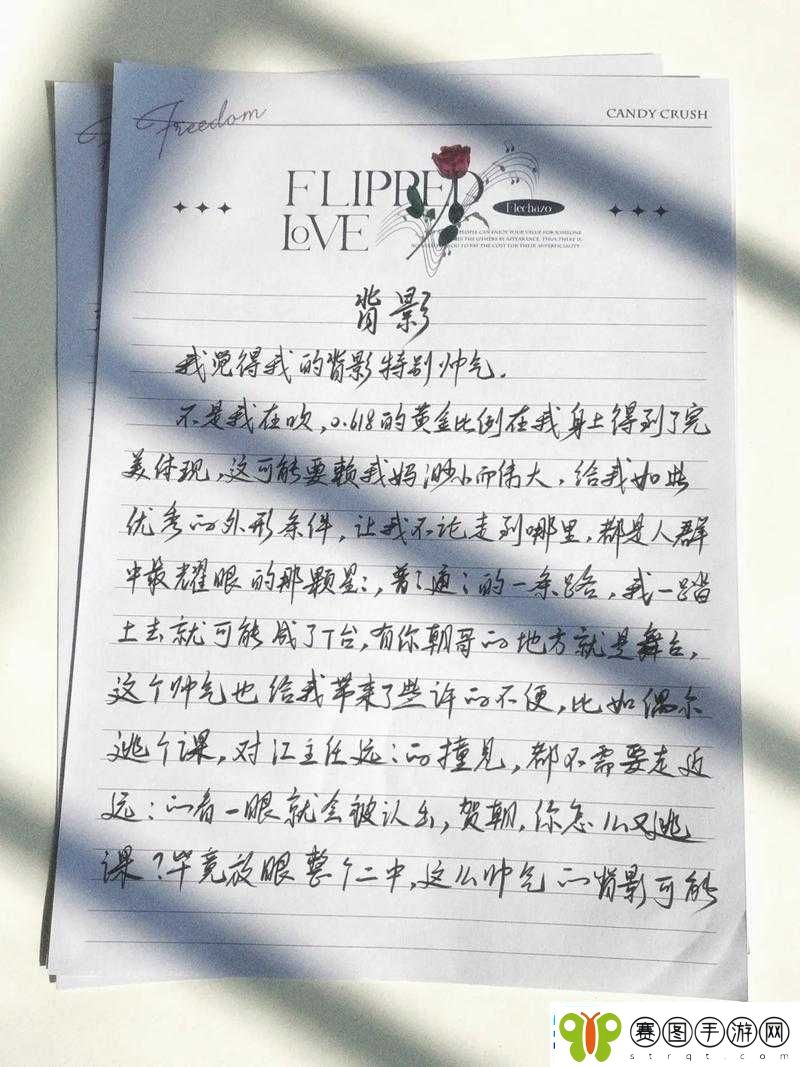 Freedom
CANDY CRUSH
FLIPPED
LOVE
Flechazo
PEOPLE CAN ENJOY YOUR VALUE FOR SOMEONE
THE OTHERS BY APPEARANCE. THUS, THERE IS
YOU TO PAY THE COST FOR THEIR SUPERFICIALITY
背影
我觉得我的背影特别帅气.
不是我在吹,0.618的黄金比例在我身上得到了完
美体现,这可能要赖我妈渺小而伟大,给我如此
优秀的外形条件,让我不论走到哪里,都是人群
中最耀眼的那颗星:,普:通:的一条路,我一踏
上去就可能成了T台,有你朝哥的地方就是舞台,
这个帅气也给我带来了些许的不便,比如偶尔
逃个课,对江主任远:的撞见,都不需要走近
远:的看一眼就会被认出,贺朝,你怎么又逃
课?毕竟放眼整个二中,这么帅气的背影可能
赛图手游网
strqt.com